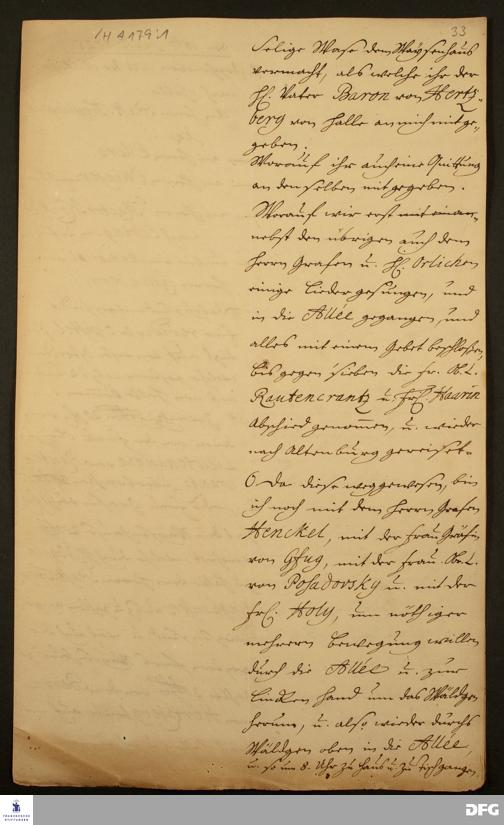 /H A 179:1
33
selige Wase dem Waÿsenhaus
vermacht, als welche ihr der
H. Vater Baron von Hertz-
berg von Halle an mich mitge-
geben.
Worauf ihr auch eine Quittung
an denselben mitgegeben.
Worauf wir erst
nebst den übrigen auch dem
Herrn Grafen u. H. Orlichen
einige Lieder gesungen, und
in die Allée gegangen, und
alles mit einem Gebet beschloßen,
bis gegen sieben die Fr. Ob. L.
Rautencrantz u. Frl. Haarin
Abschied genommen, u. wieder
nach Altenburg gereiset.
6. Da diese weggewesen, bin
ich noch mit dem Herrn Grafen
Henckel, mit der Frau Gräfin
von Gfug, mit der Frau Ob. L.
von Posadovsky u. mit der
Frl. Holy, um nöthiger
mehrern Bewegung willen
durch die Allée u. zur
lincken Hand um das Wäldgen
herum, u. also wieder durchs
Wäldgen oben in die Allée,
u. so um 8. Uhr zu Haus u. zu Tisch gangen.
FRANCKESCHE
STIFTUNGEN
DFG